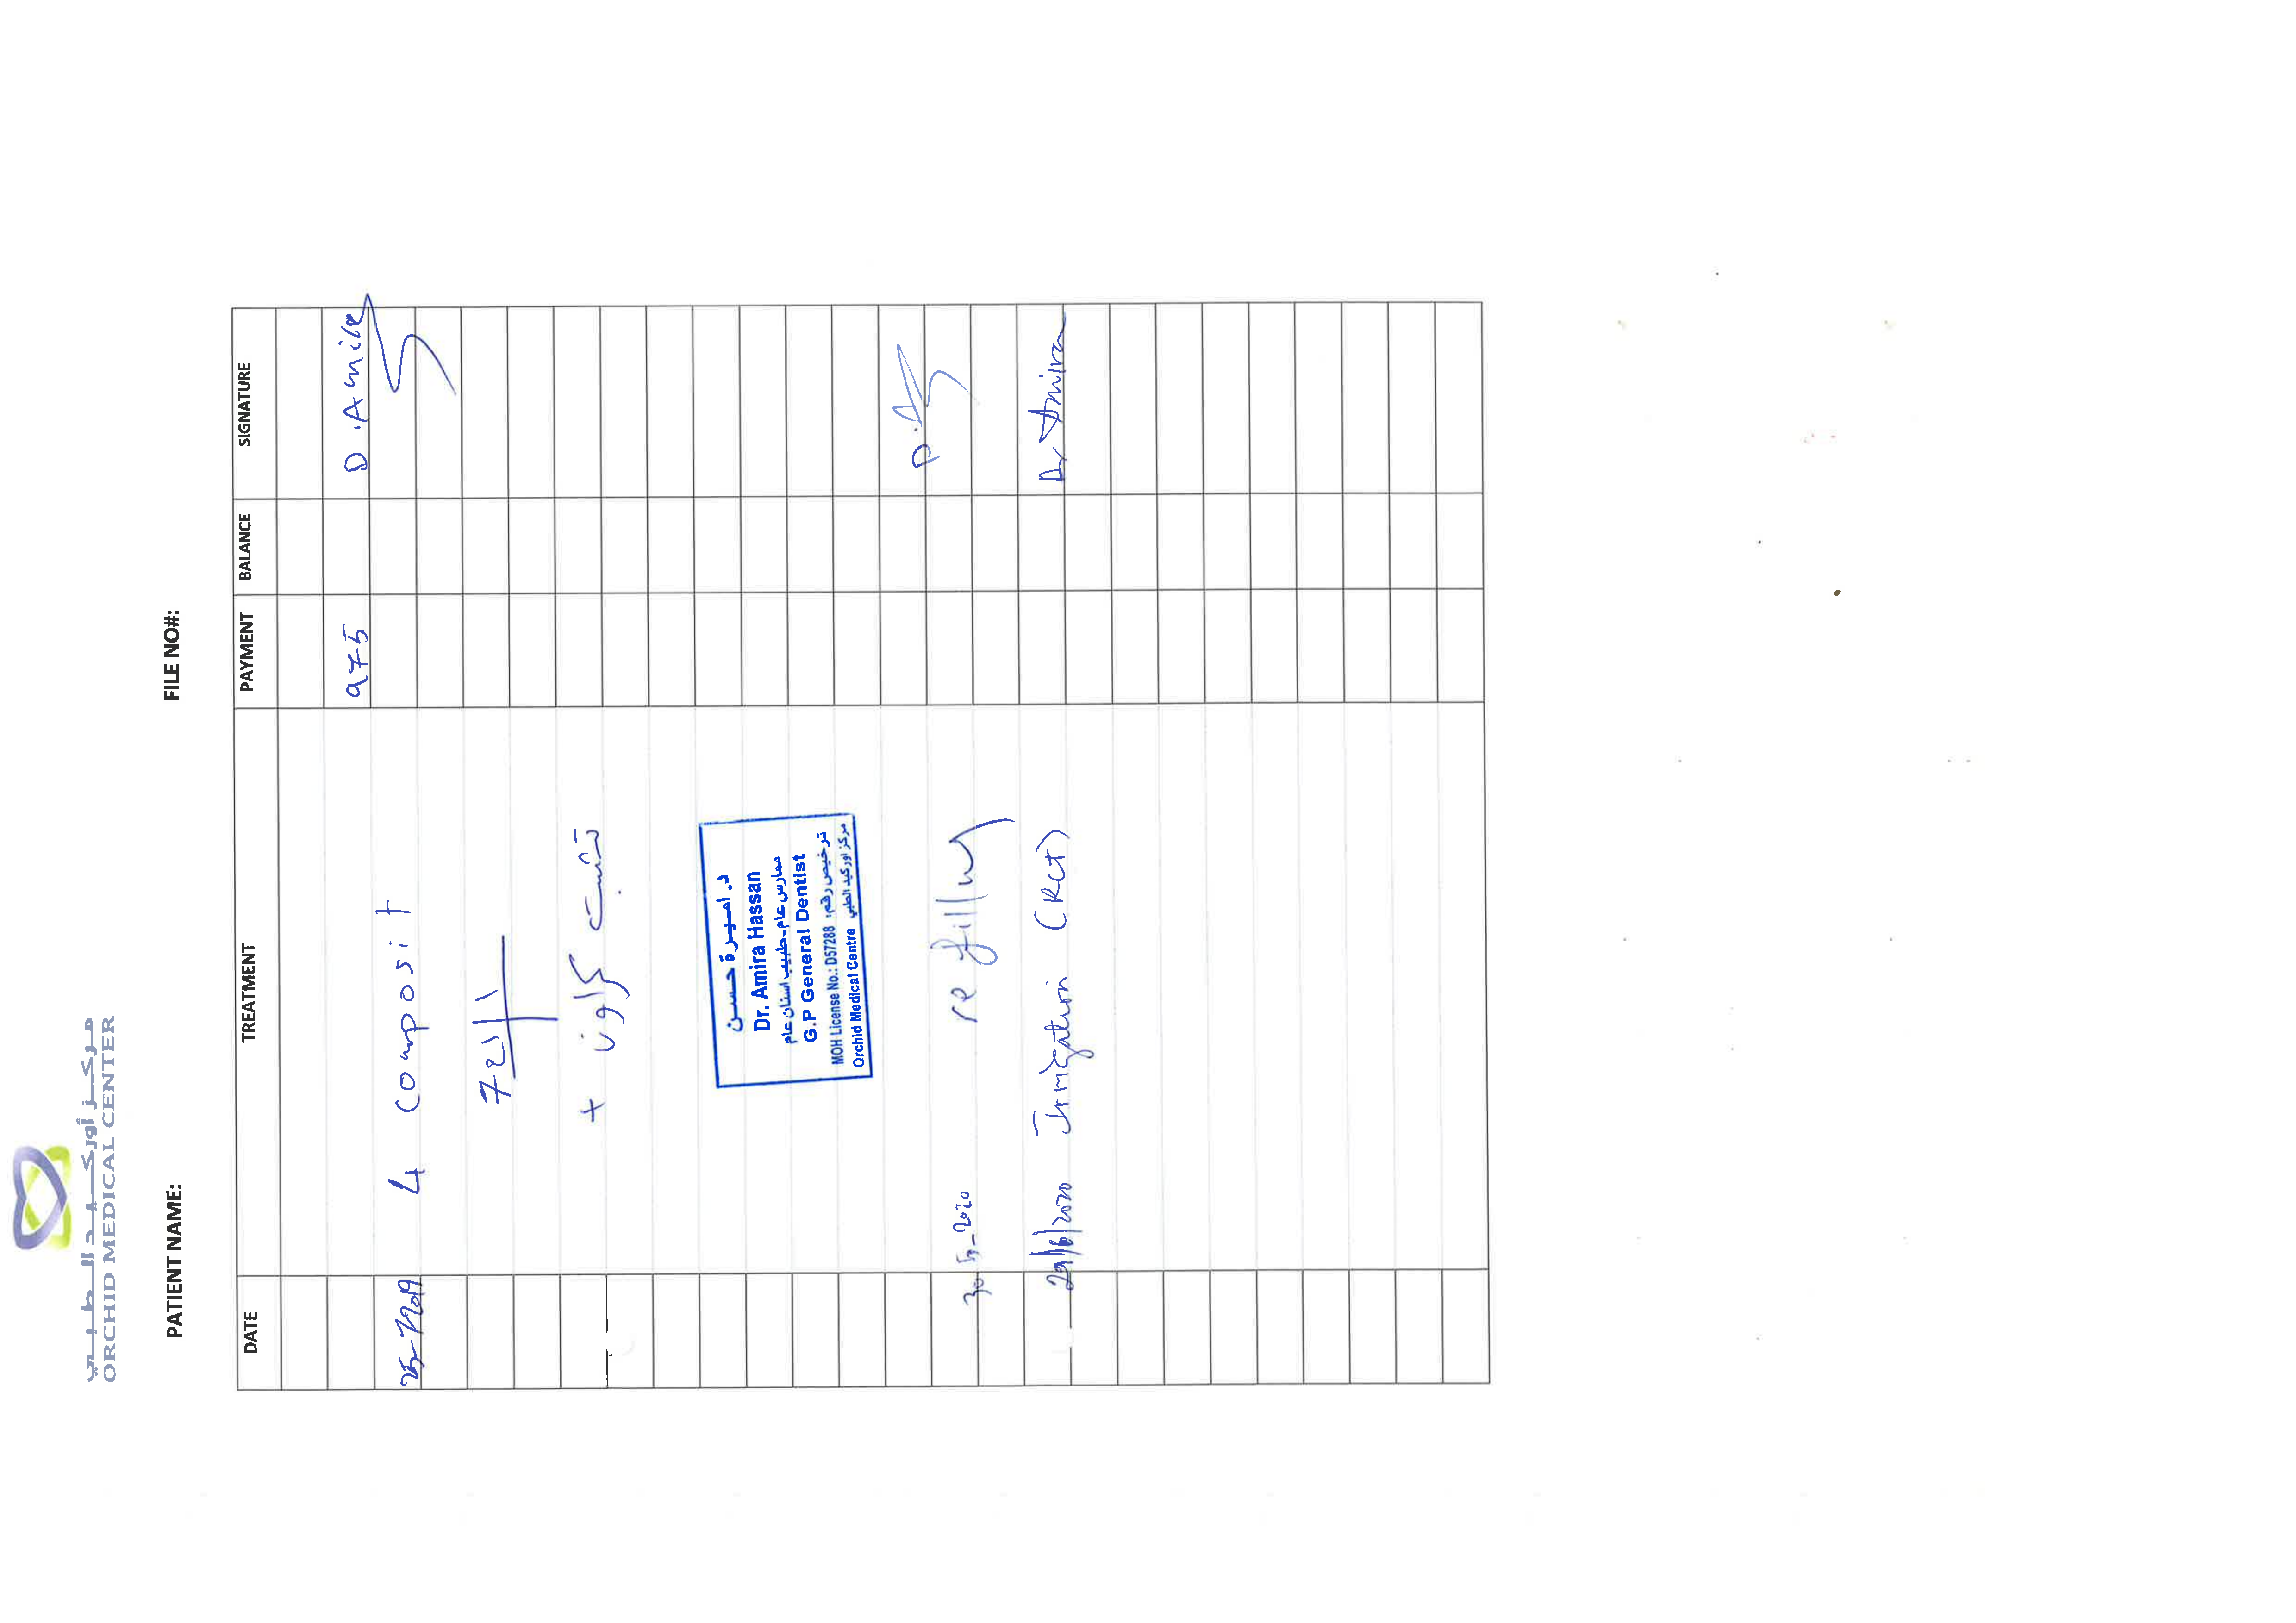 مركز أوركيد الطبي
ORCHID MEDICAL CENTER
PATIENT NAME: FILE NO#:
DATE TREATMENT PAYMENT BALANCE SIGNATURE
975 D.Amira
25-7-2019 4 composit
721|1
+ تثبيت كراون
د. اميرة حسن
Dr. Amira Hassan
ممارس عام - طبيب اسنان عام
G.P General Dentist
MOH License No.: D57288 ترخيص رقم:
Orchid Medical Centre مركز اوركيد الطبي
30-5-2020 re filling
29/6/2020 Irrigation (RCT) Dr Amira